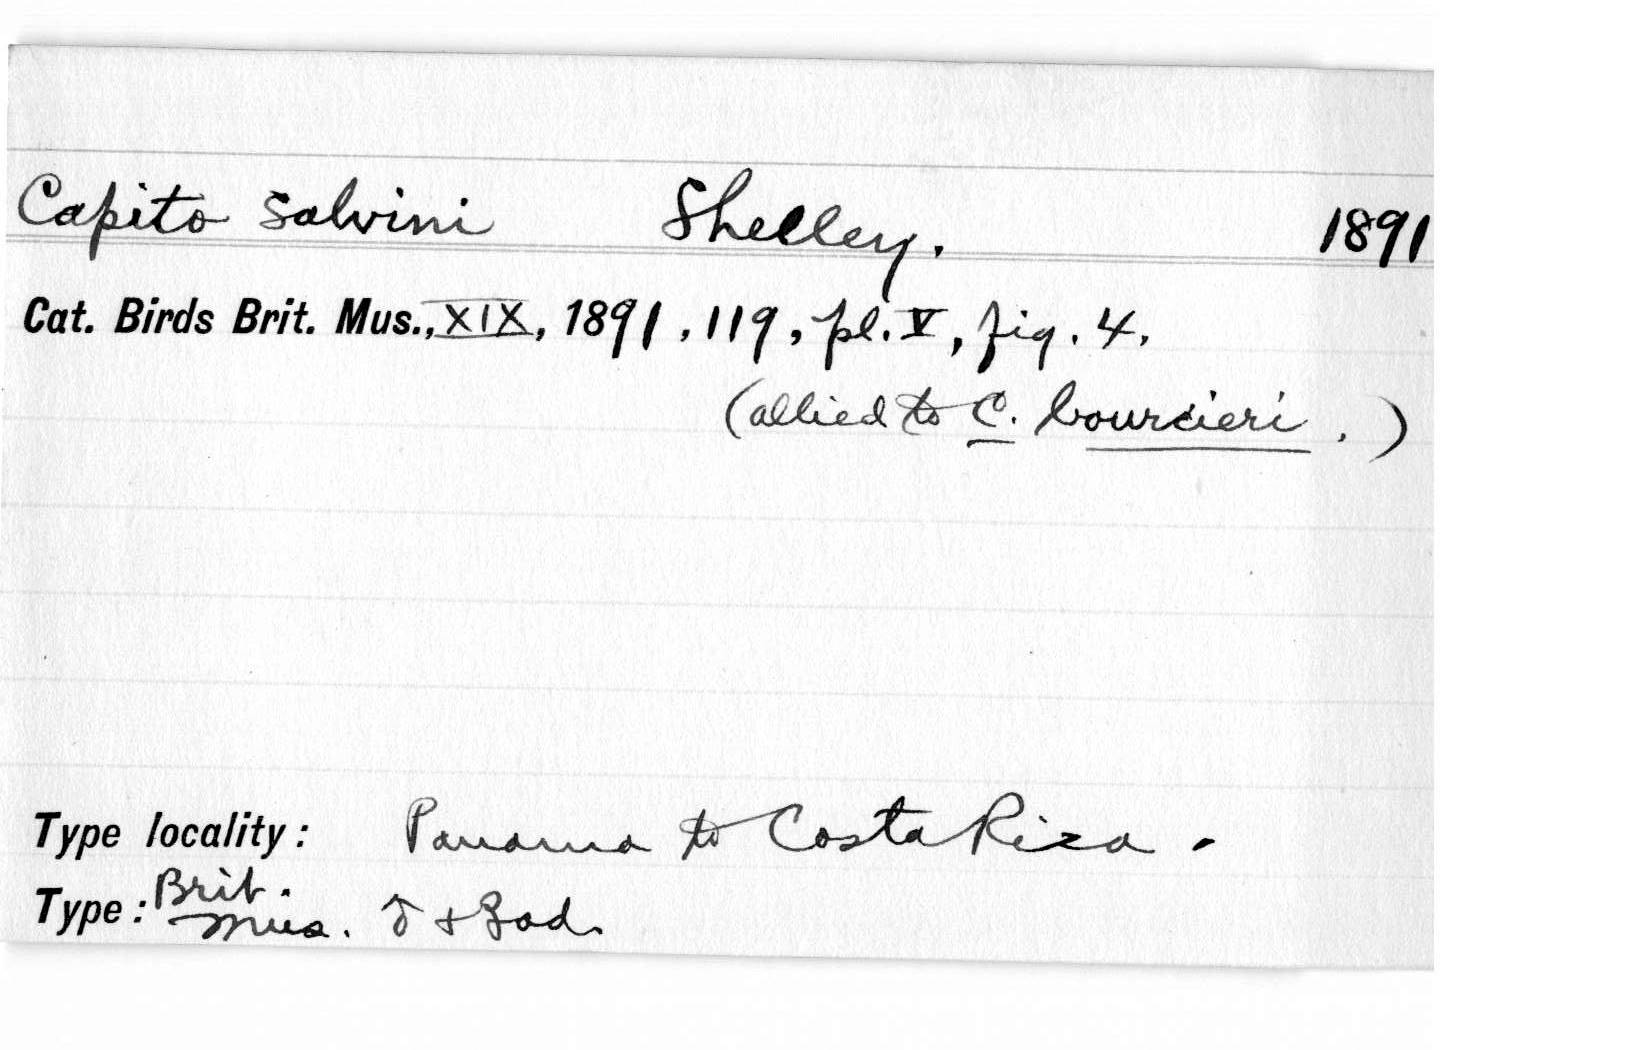 Capito salvini Shelley. 1891
Cat. Birds Brit. Mus., XIX, 1891, 119, pl. V, fig. 4.
(allied to C. bourcieri.)
Type locality: Panama to Costa Rica.
Type: Brit. Mus. ♂ + Jad.